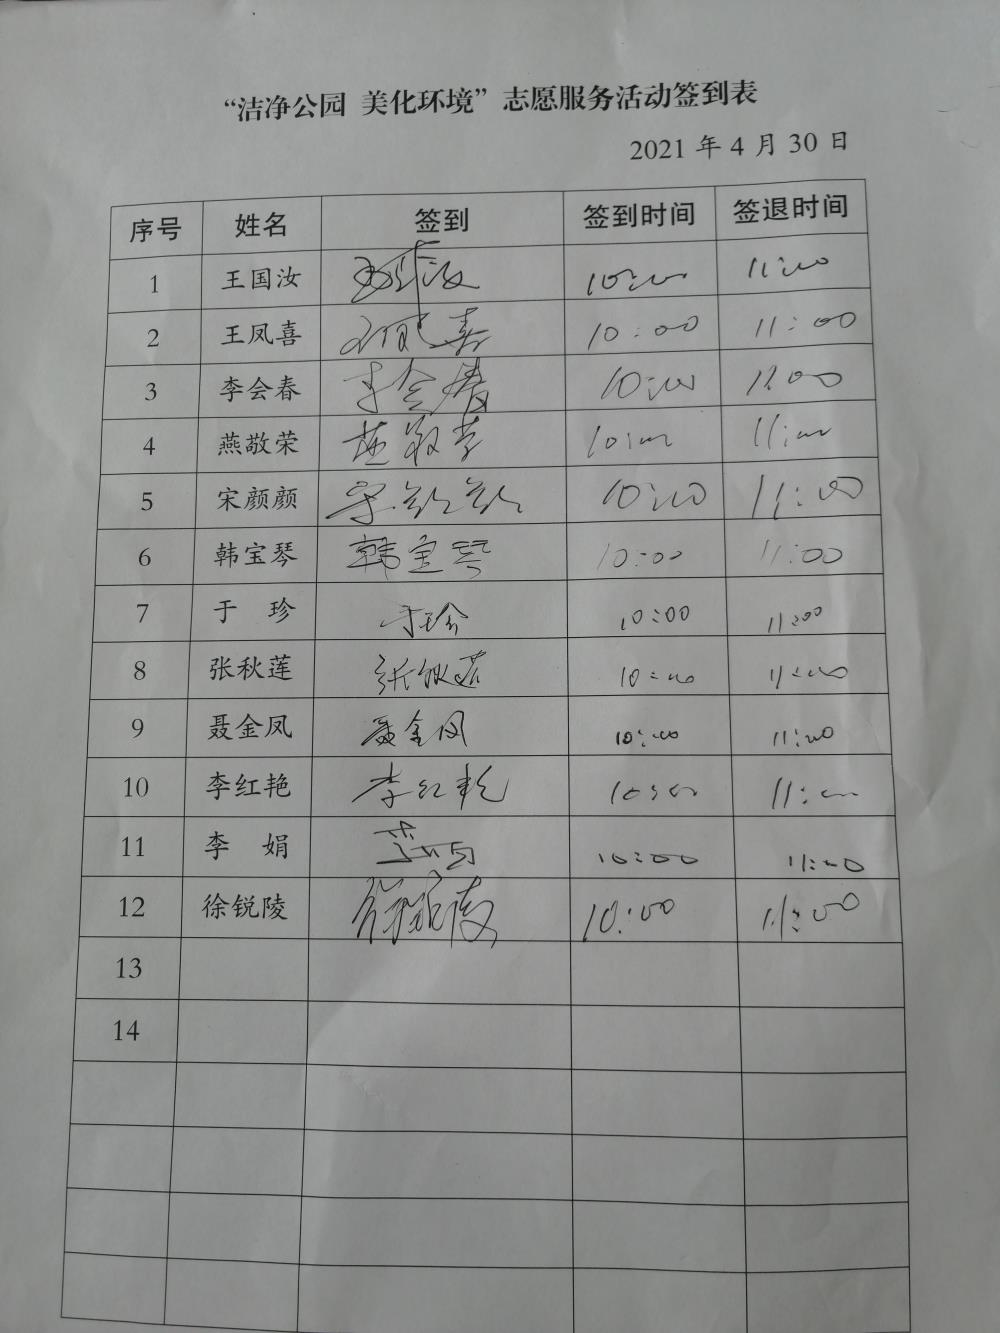 “洁净公园 美化环境”志愿服务活动签到表
2021 年 4 月 30 日
序号 姓名 签到 签到时间 签退时间
1 王国汝 王国汝 10:00 11:00
2 王凤喜 王凤喜 10:00 11:00
3 李会春 李会春 10:00 11:00
4 燕敬荣 燕敬荣 10:00 11:00
5 宋颜颜 宋颜颜 10:00 11:00
6 韩宝琴 韩宝琴 10:00 11:00
7 于 珍 于珍 10:00 11:00
8 张秋莲 张秋莲 10:00 11:00
9 聂金凤 聂金凤 10:00 11:00
10 李红艳 李红艳 10:00 11:00
11 李 娟 李娟 10:00 11:00
12 徐锐陵 徐锐陵 10:00 11:00
13
14